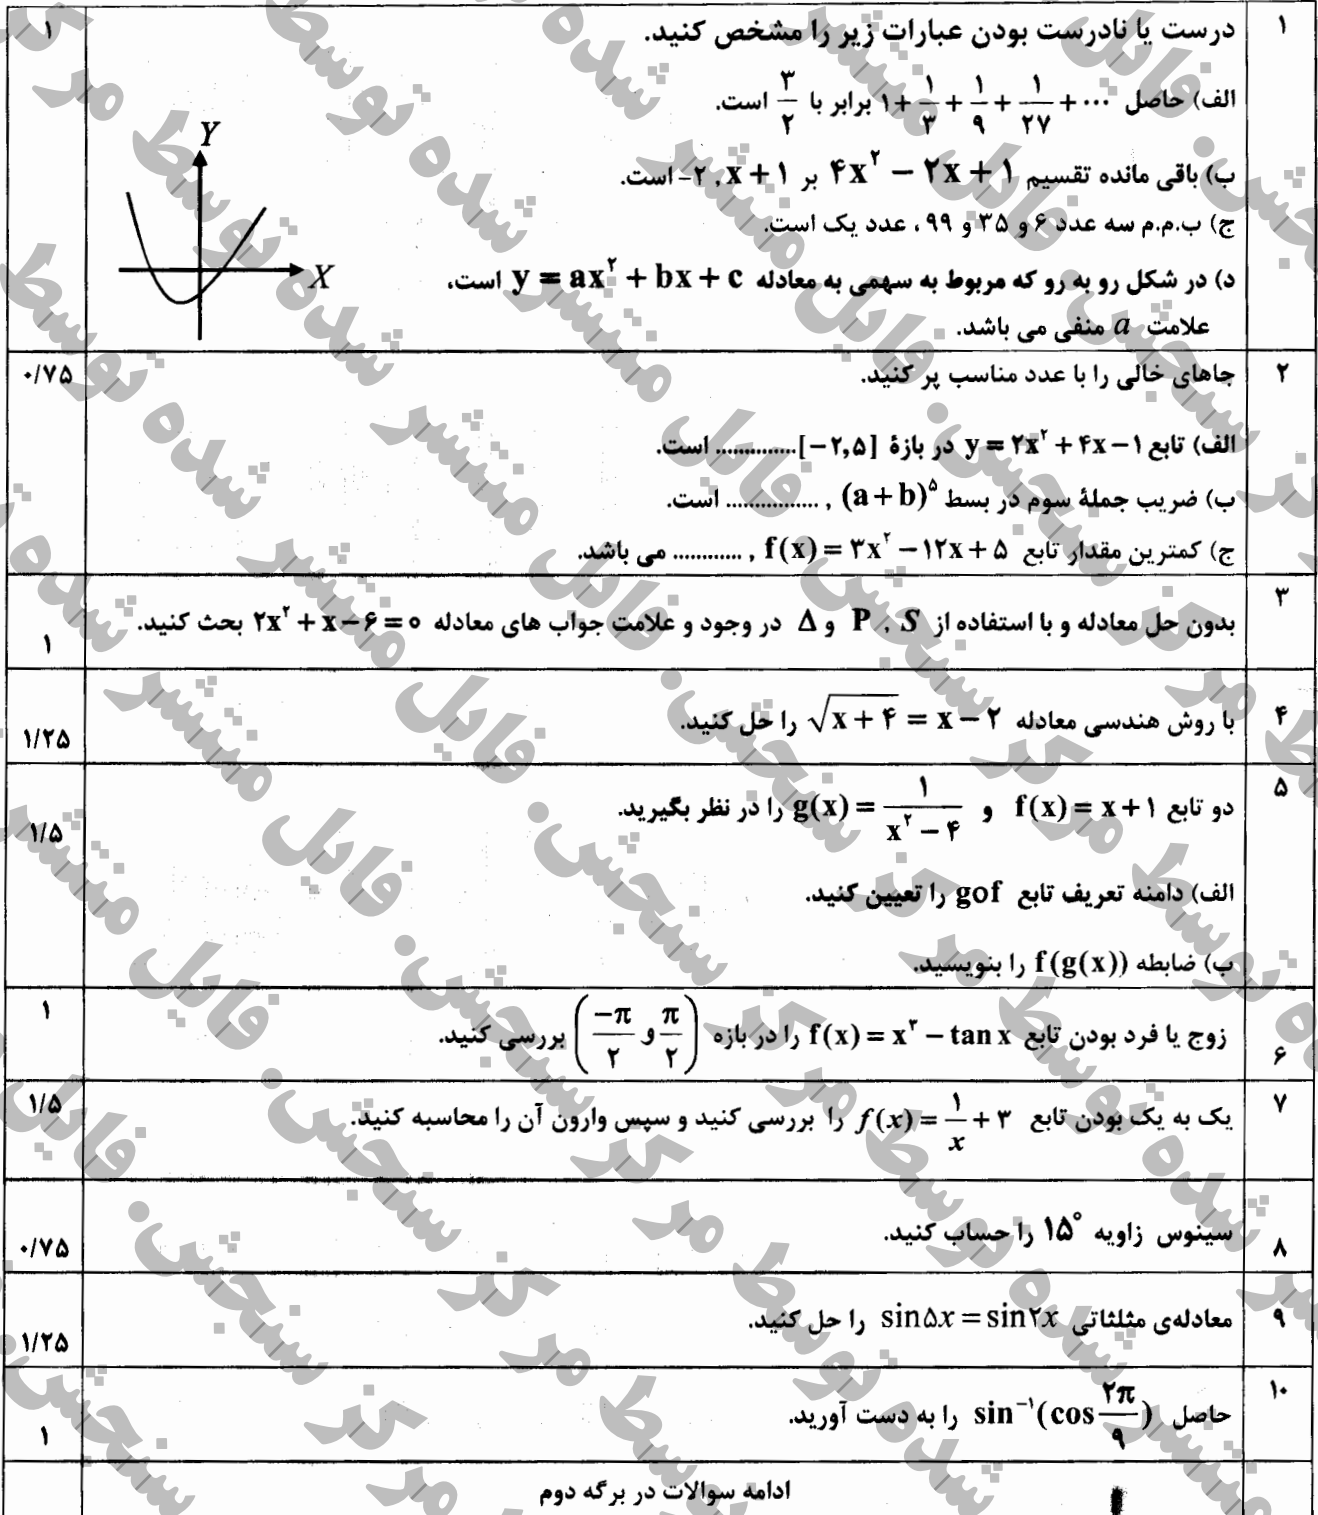 ۱ درست یا نادرست بودن عبارات زیر را مشخص کنید. ۱
الف) حاصل ۱ + ۱/۳ + ۱/۹ + ۱/۲۷ + ⋯ برابر با ۳/۲ است.
ب) باقی مانده تقسیم ۴x² − ۲x + ۱ بر x + ۱ , ۲- است.
ج) ب.م.م سه عدد ۶ و ۳۵ و ۹۹ ، عدد یک است.
د) در شکل رو به رو که مربوط به سهمی به معادله y = ax² + bx + c است،
علامت a منفی می باشد.
Y
X
۲ جاهای خالی را با عدد مناسب پر کنید. ۰/۷۵
الف) تابع y = ۲x² + ۴x − ۱ در بازهٔ [−۲,۵] .............. است.
ب) ضریب جملهٔ سوم در بسط (a + b)⁵ , ................ است.
ج) کمترین مقدار تابع f(x) = ۳x² − ۱۲x + ۵ , ............ می باشد.
۳ بدون حل معادله و با استفاده از S , P و Δ در وجود و علامت جواب های معادله ۲x² + x − ۶ = ۰ بحث کنید. ۱
۴ با روش هندسی معادله √(x + ۴) = x − ۲ را حل کنید. ۱/۲۵
۵ دو تابع f(x) = x + ۱ و g(x) = ۱/(x² − ۴) را در نظر بگیرید. ۱/۵
الف) دامنه تعریف تابع gof را تعیین کنید.
ب) ضابطه f(g(x)) را بنویسید.
۶ زوج یا فرد بودن تابع f(x) = x³ − tan x را در بازه (−π/۲ و π/۲) بررسی کنید. ۱
۷ یک به یک بودن تابع f(x) = ۱/x + ۳ را بررسی کنید و سپس وارون آن را محاسبه کنید. ۱/۵
۸ سینوس زاویه ۱۵° را حساب کنید. ۰/۷۵
۹ معادله‌ی مثلثاتی sin۵x = sin۲x را حل کنید. ۱/۲۵
۱۰ حاصل sin⁻¹(cos ۲π/۹) را به دست آورید. ۱
ادامه سوالات در برگه دوم